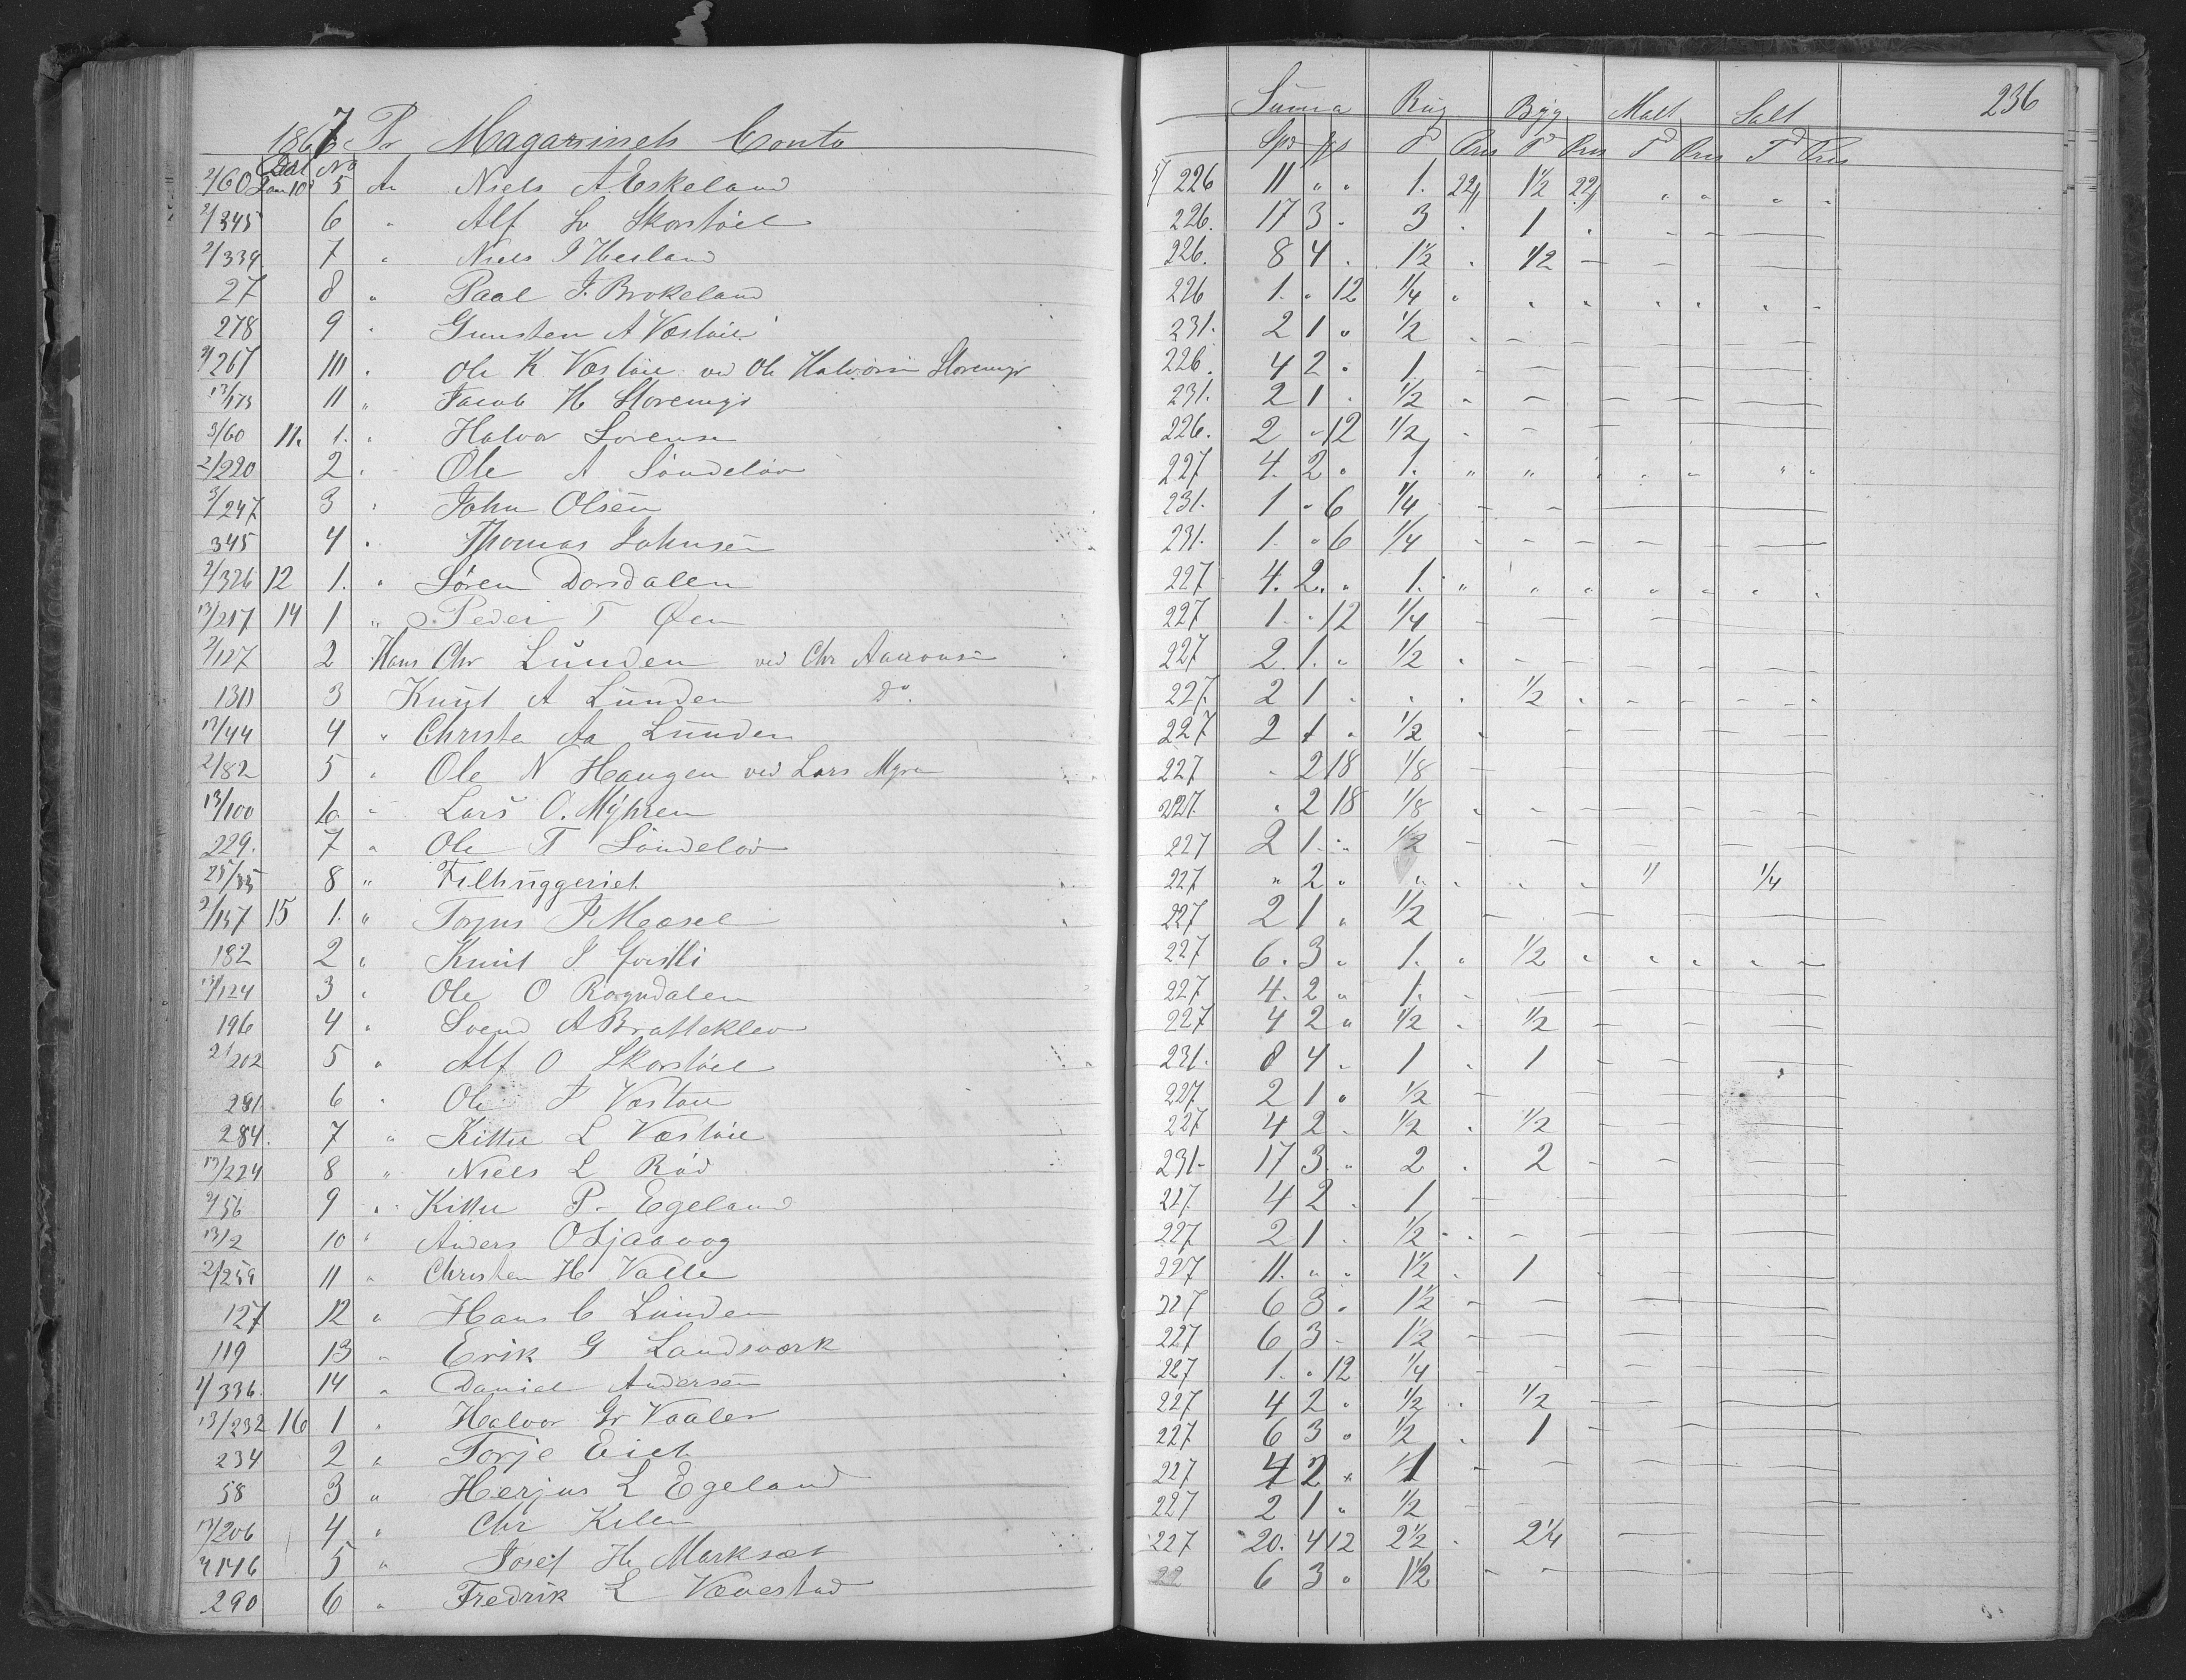 1867 Pr Magazinets Conto 236
Summa Rug Byg Malt Salt
Dat No Spd T Pris T Pris T Pris T Pris
2/60 Jan 10 5 An Niels A Eskeland 226 11 " " 1. 22/ 1½ 22/ " " " "
2/345 6 " Alf Sv Skorstöel 226. 17 3 - 3 . 1
2/339 7 " Niels J Hesland 226. 8 4 . 1½ . 1/2 -
27 8 " Paal J. Brokeland 226 1. " 12 1/4
278 9 " Gunsten A Vestöie 231. 2 1 " 1/2
2/267 10 . Ole K Vestöie ved Ole Halvorsen Storemyr 226. 4 2 . 1.
13/173 11 " Jacob H Storemyr 231. 2 1 . 1/2
3/60 11. 1. " Halvor Sorensen 226. 2 " 12 1/2
2/220 2 . Ole A Söndelöv 227 4. 2 . 1.
3/247 3 . John Olsen 231. 1 " 6 1/4
345 4 . Thomas Johnsen 231. 1. " 6 1/4
2/326 12 1. " Sören Dorsdalen 227 4. 2. " 1.
13/217 14 1 " Peder T Øen 227 1. " 12 1/4
2/127 2 Hans Chr Lunden ved Chr Aanonsen 227 2. 1. " 1/2
130 3 Knut A Lunden Do. 227. 2 1 . . . 1/2
13/44 4 " Christen Aa Lunden 227 2 1 " 1/2
2/82 5 " Ole N Haugen ved Lars Myren 227 " 2 18 1/8
13/100 6 " Lars O. Myhren 227. " 2 18 1/8
229. 7 " Ole T Söndelöv 227 2 1. " 1/2
25/35 8 " Filhuggeriet 227 " 2 " " . . . " 1/4
2/157 15 1. " Torjus J Moesel 227 2 1 " 1/2
182 2 " Knut J 227 6. 3 " 1. " 1/2
13/124 3 " Ole O Rogndalen 227 4. 2 " 1.
196 4 " Svend A Bratteklev 227 4 2 " 1/2 . 1/2
2/202 5 " Alf O Skorstöel 231. 8 4 . 1 . 1
281 6 . Ole J Vestöie 227 2 1 . 1/2
284. 7 " Kittel L Vestöie 227 4 2 . 1/2 . 1/2
13/224 8 " Niels L Röd 231- 17 3 " 2 . 2
2/56 9 " Kittel P. Egeland 227. 4 2 . 1
13/2 10 " Anders O Ljaavog 227 2 1 . 1/2
2/259 11 " Christen H Valle 227 11. " " 1½ . 1
127 12 " Hans C Lunden 227 6 3 . 1½
119 13 " Erik G Landsværk 227 6 3 - 1½
2/336. 14 " Daniel Andersen 227 1. " 12 1/4
13/232 16 1 " Halvor Gr Vaaler 227 4 2 . 1/2 . 1/2
234 2 " Torje Eiet 227. 6 3 " 1/2 . 1
58 3 " Herjus L Egeland 227 4 2 " 1
13/206 4 " Chr Kilen 227 2 1 " 1/2
2/146 5 " Josef H Marksæt 227 20. 4 12 2½ . 2¼
290 6 " Fredrik L Vævestad 22 6 3 " 1½